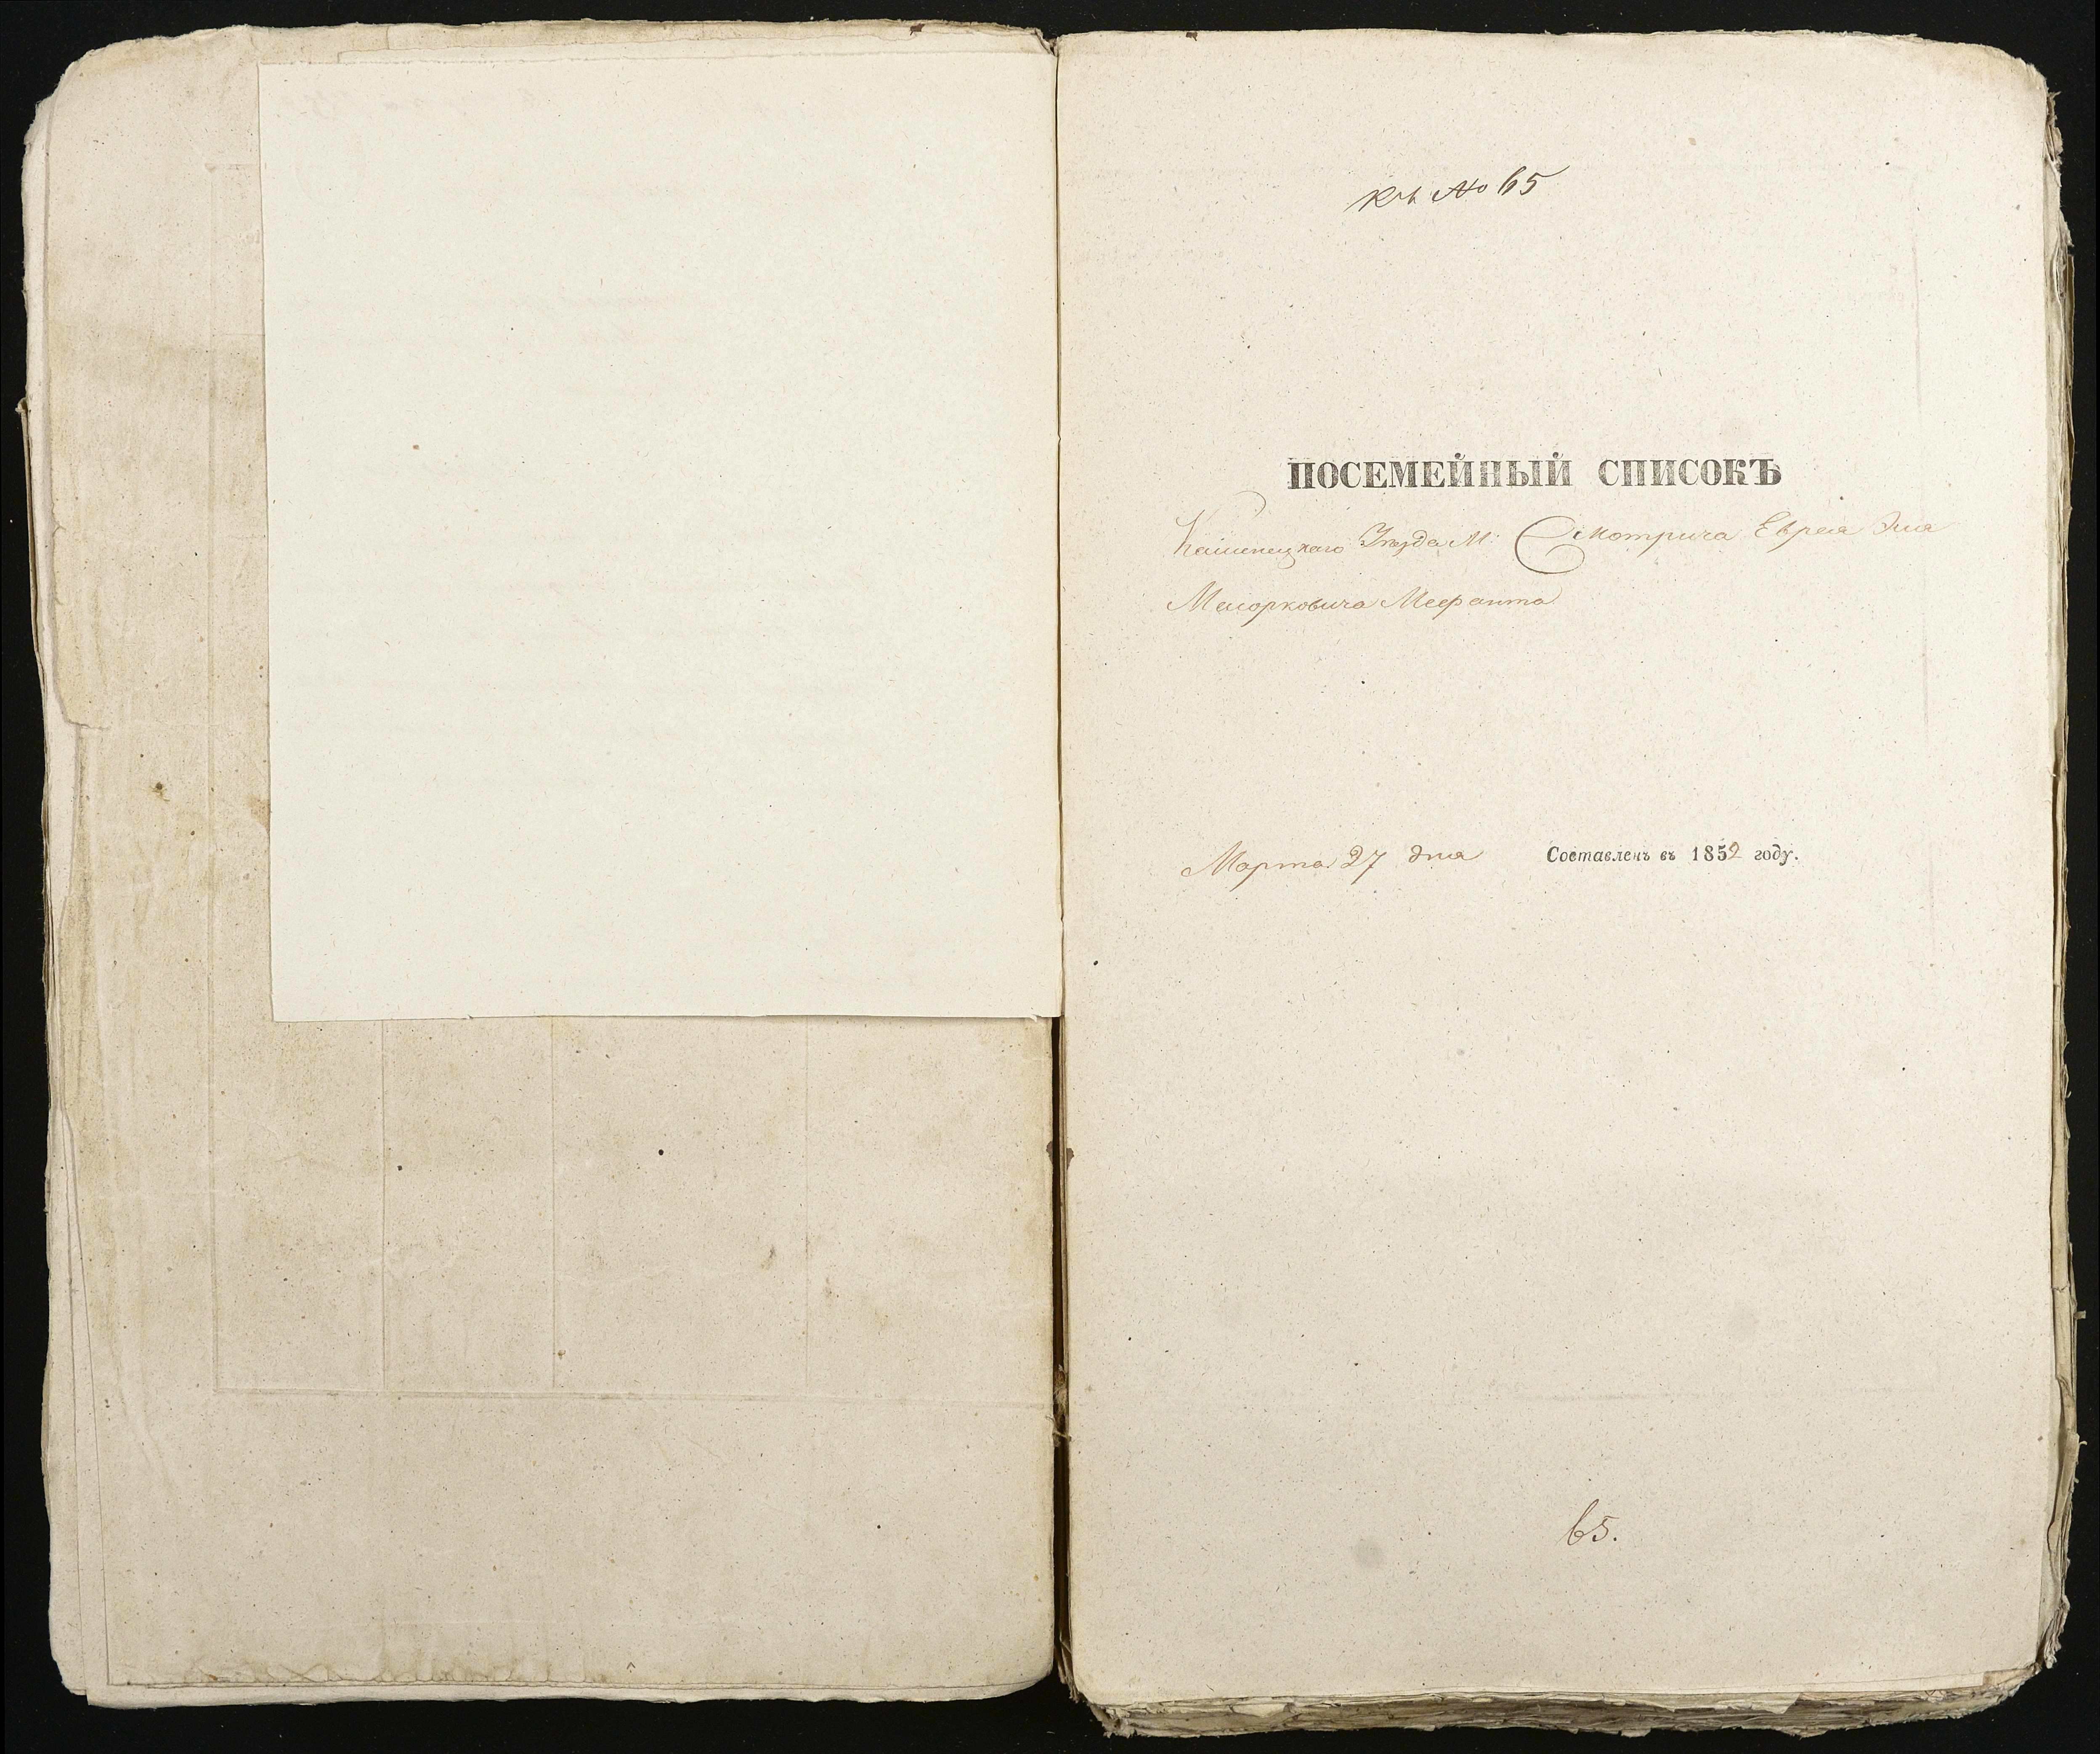 къ № 65
ПОСЕМЕЙНЫЙ СПИСОКЪ
Каменецкаго Уезда М. Смотрича Еврея
Марта 27 дня Составленъ въ 1852 году.
65.